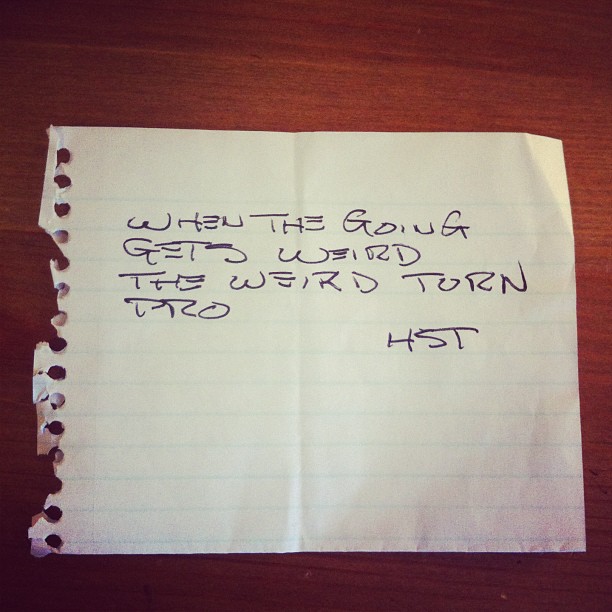 WHEN THE GOING
GETS WEIRD
THE WEIRD TURN
PRO
HST